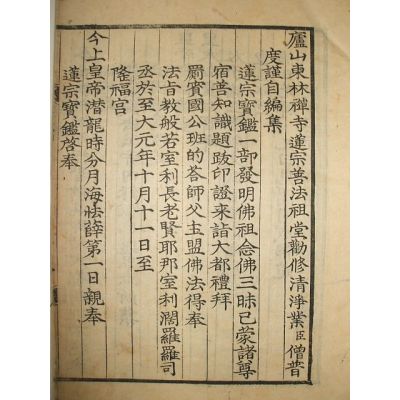 廬山東林禪寺蓮宗善法祖堂勸修清淨業臣僧普
度謹自編集
蓮宗寶鑑一部發明佛祖念佛三昧已蒙諸尊
宿善知識題跋印證來詣大都禮拜
罽賓國公班的荅師父主盟佛法得奉
法旨教般若室利長老賢耶那室利濶羅羅司
丞於至大元年十月十一日至
隆福宫
今上皇帝潜龍時分月海怯薛第一日親奉
蓮宗寶鑑啓奉